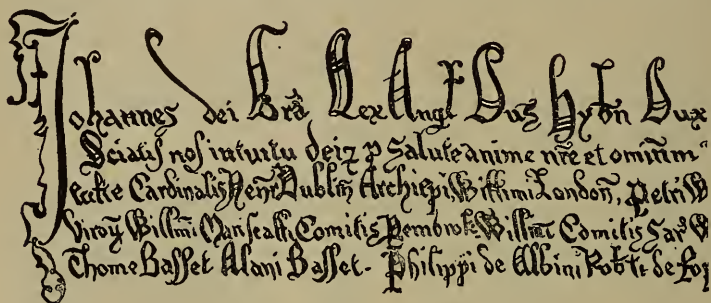 Johannes dei Gra Rex Angl Dns Hybn Dux
Sciatis nos intuitu dei z p Salute anime nre et omnium
eccte Cardinalis Henr Dublin Archiepi Willimi London, Petri W
Viroru Willmi Mariscalli Comitis Pembroke Willmi Comitis Sar W
Thome Basset Alani Basset. Philippi de Albini Robti de